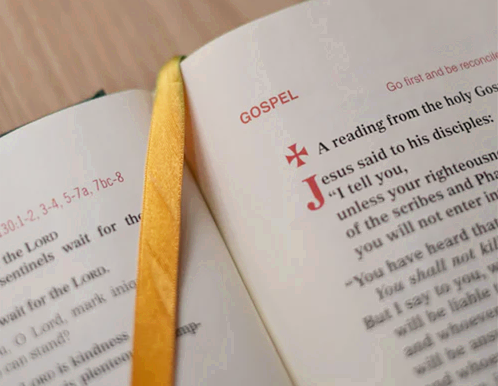 130:1-2, 3-4, 5-7a, 7bc-8
the LORD
sentinels wait for the
wait for the LORD.
O Lord, mark
can stand?
LORD is kindness
plenteous
GOSPEL
Go first and be reconcile
A reading from the holy Gos
Jesus said to his disciples:
"I tell you,
unless your righteousn
of the scribes and Pha
you will not enter in
"You have heard tha
You shall not kil
But I say to you,
will be liable
and whoeve
will be ans
and whos
will be